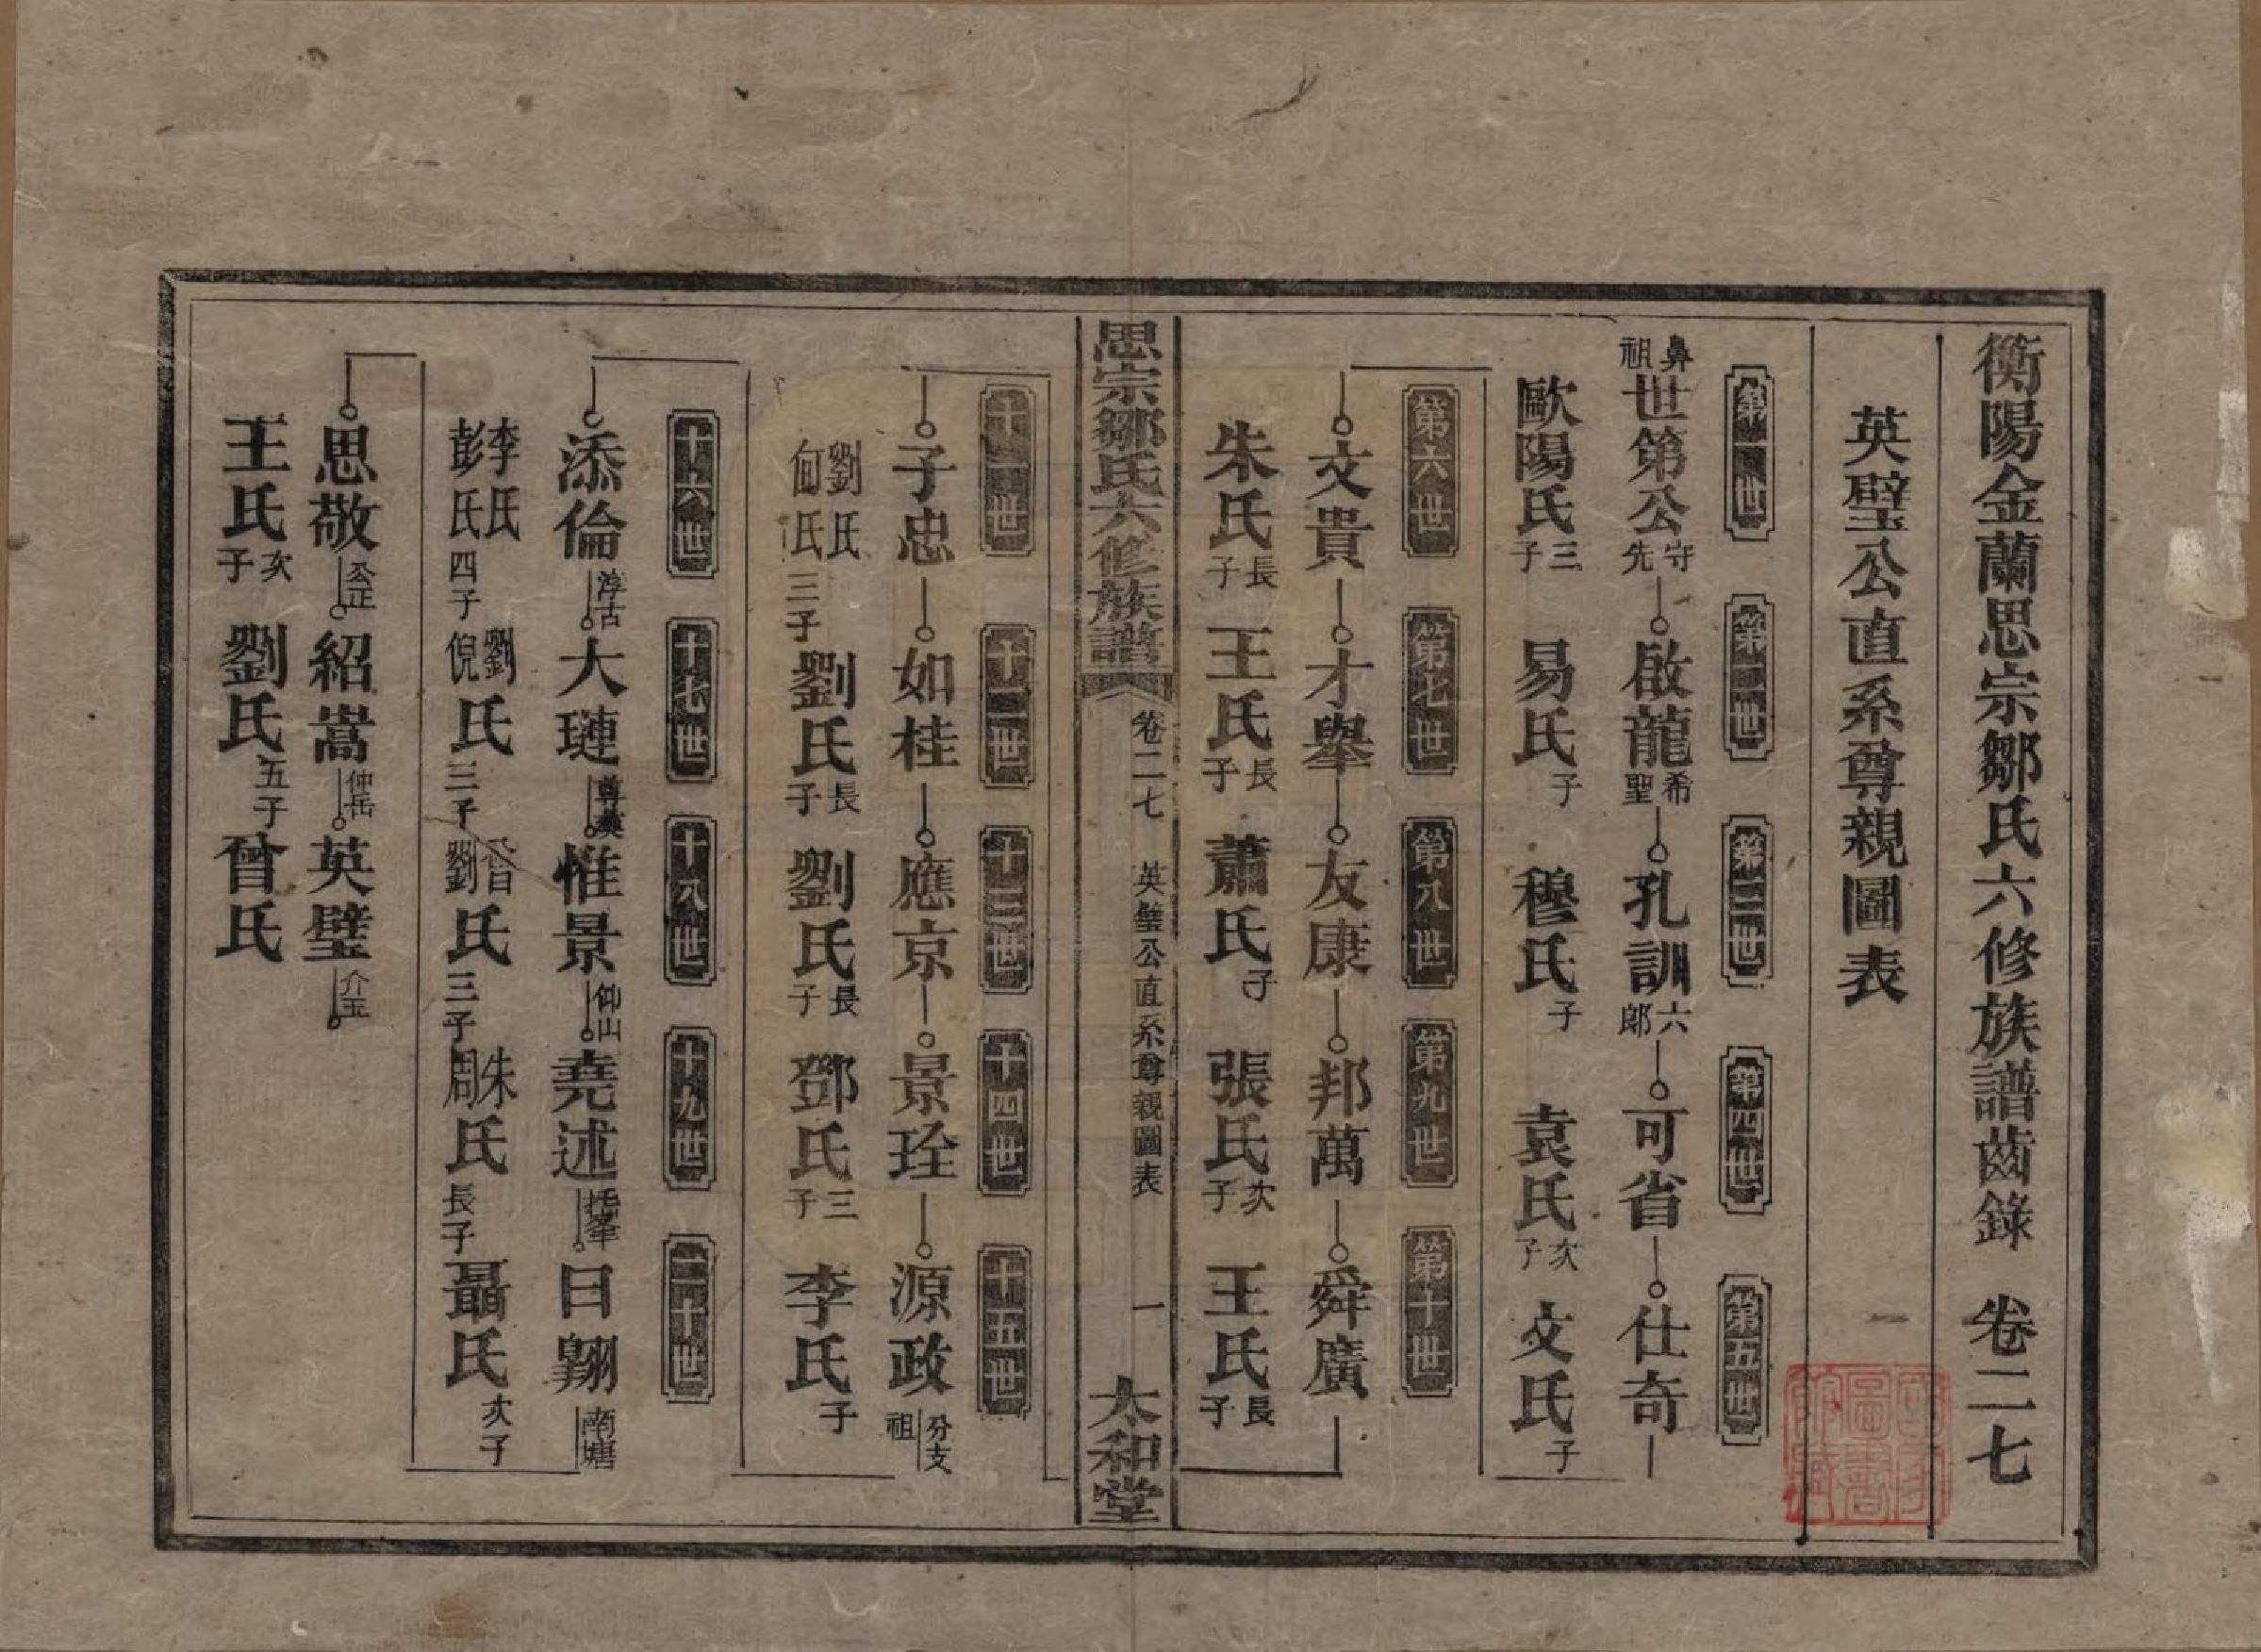 衡陽金蘭思宗鄒氏六修族譜齒錄 卷二七
英璧公直系尊親圖表
第一世 第二世 第三世 第四世 第五世
鼻祖 世第公 守先 啟龍 希聖 孔訓 六郎 可省 仕奇
歐陽氏 三子 易氏 子 穆氏 子 袁氏 次子 文氏 子
第六世 第七世 第八世 第九世 第十世
文貴 才舉 友康 邦萬 舜廣
朱氏 長子 王氏 長子 蕭氏 子 張氏 次子 王氏 長子
思宗鄒氏六修族譜 卷二七 英璧公直系尊親圖表 一 太和堂
十一世 十二世 十三世 十四世 十五世
子忠 如桂 應京 景珄 源政 分支祖
劉氏 何氏 三子 劉氏 長子 劉氏 長子 鄧氏 三子 李氏 子
十六世 十七世 十八世 十九世 二十世
添倫 淳古 大璉 尊英 惟景 仰山 堯述 托峯 日翱 南塘
李氏 彭氏 四子 劉倪氏 三子 劉氏 三子 朱周氏 長子 聶氏 次子
思敬 公正 紹嵩 仲岳 英璧 介玉
王氏 次子 劉氏 五子 曾氏